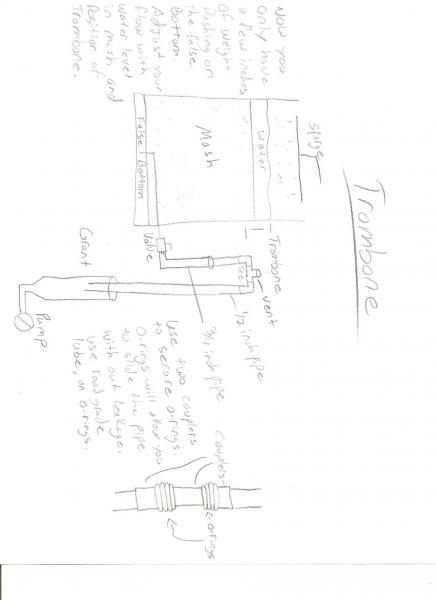 Trombone
sparge
Water
Mash
False Bottom
Trombone
vent
Tee
1/2 inch pipe
3/4 inch pipe
Valve
Grant
Pump
Now you
only have
a few inches
of weight
Pushing on
The false
Bottom.
Adjust your
flow with
water level
in mash and
Position of
Trombone.
Use two couplers
to secure o-rings.
O-rings will allow you
to slide the pipe
with out leakage.
use food grade
lube, on o-rings.
Couplers
o-rings